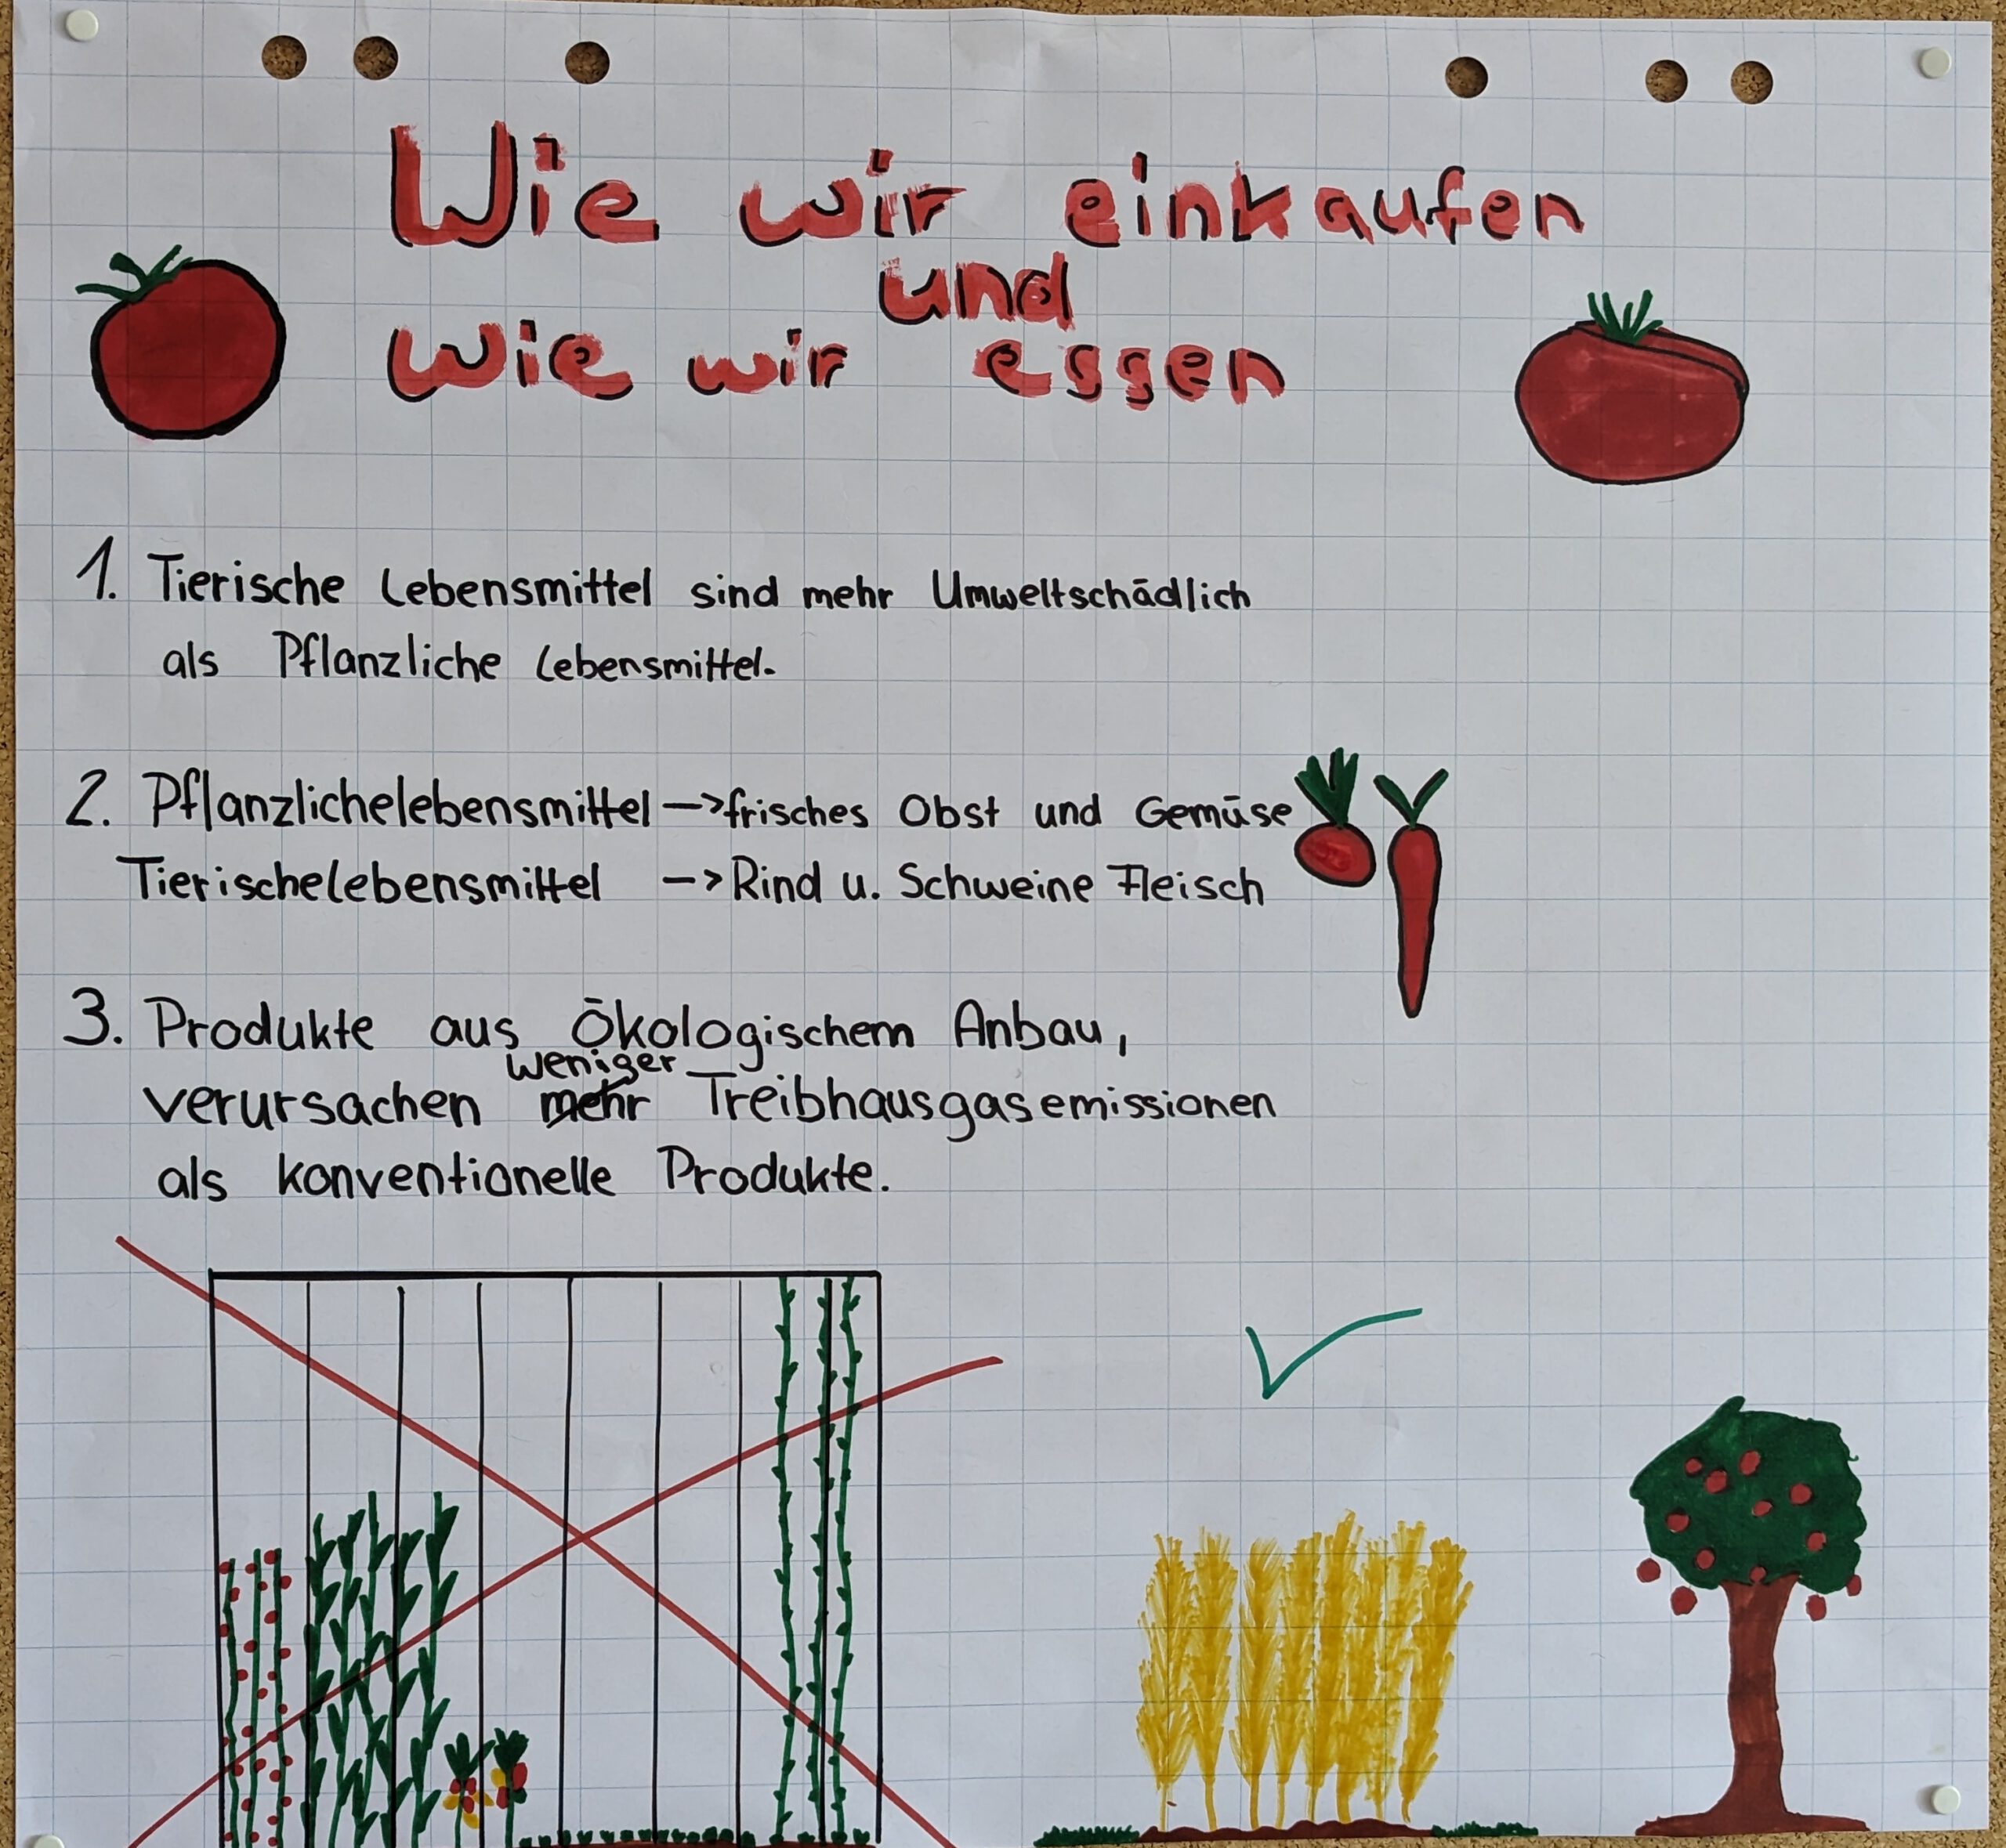 Wie wir einkaufen
und
wie wir essen
1. Tierische Lebensmittel sind mehr Umweltschädlich
als Pflanzliche Lebensmittel.
2. Pflanzlichelebensmittel -> frisches Obst und Gemüse
Tierischelebensmittel -> Rind u. Schweine Fleisch
3. Produkte aus Ökologischem Anbau,
weniger
verursachen mehr Treibhausgasemissionen
als konventionelle Produkte.